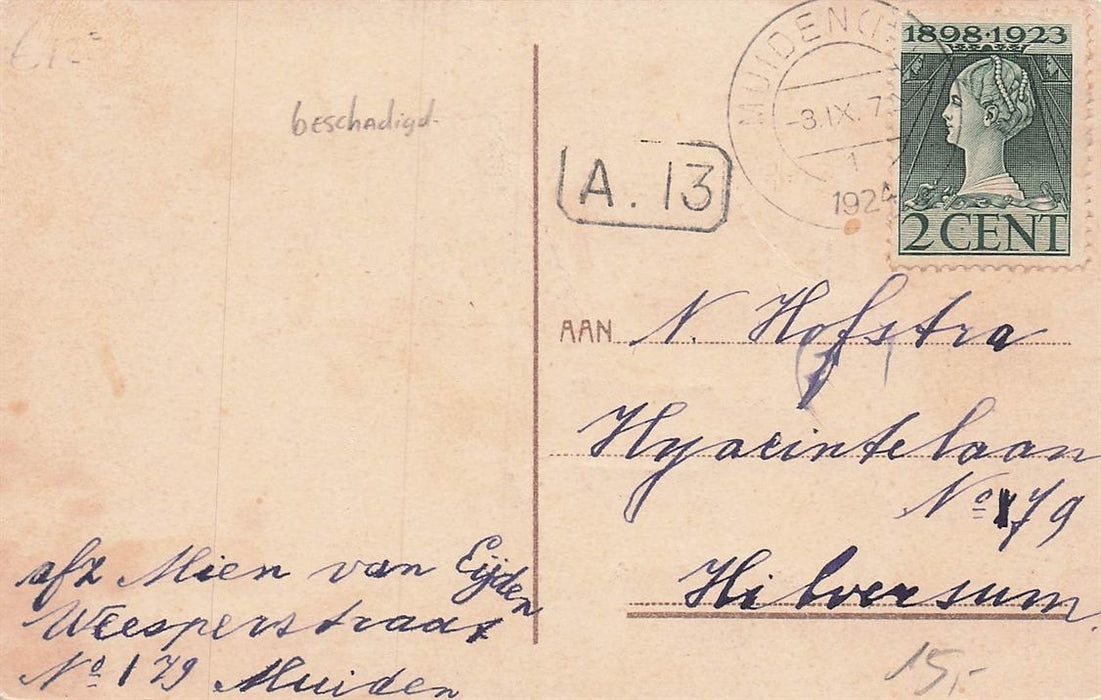 beschadigd.
MUIDEN
-3.IX.
1
1924
1898·1923
2 CENT
A. 13
AAN N. Hofstra
Hyacintelaan
Nº 179
Hilversum.
afz Mien van Eijden
Weesperstraat
Nº 179 Muiden
15,-